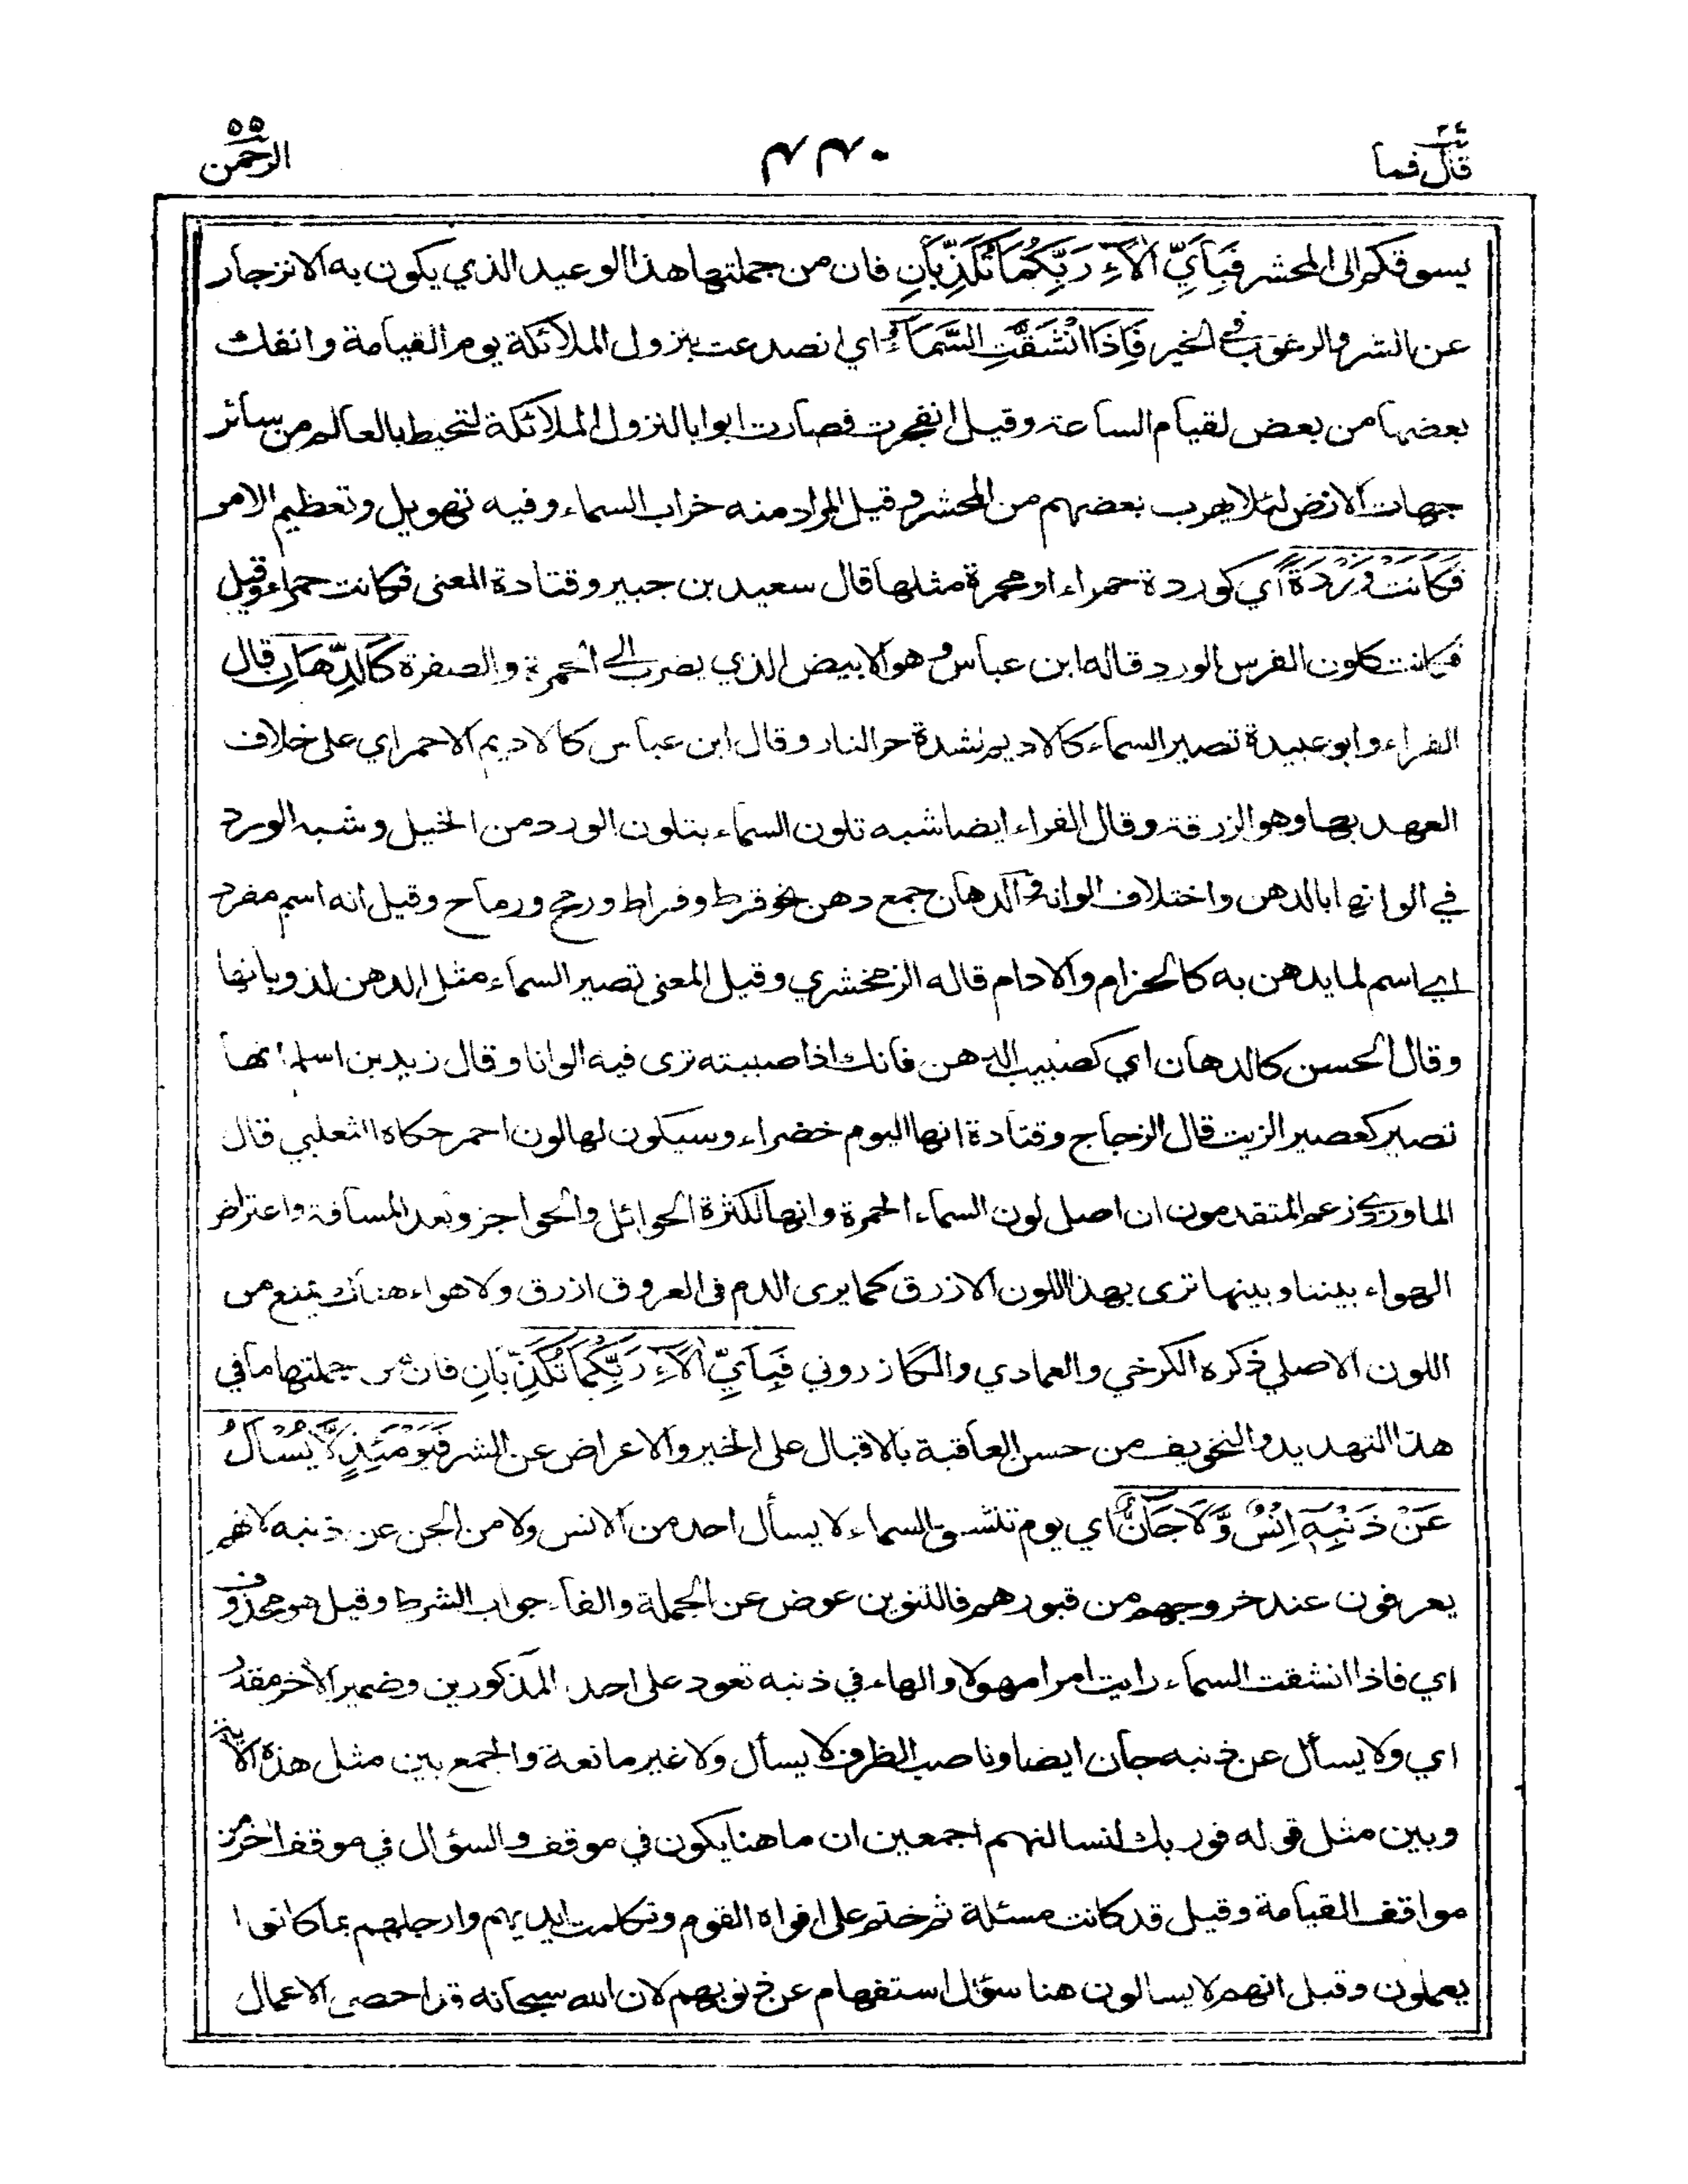 قال فما
الرحمن ٥٥
يسوقكم إلى المحشر فَبِأَيِّ آلَاءِ رَبِّكُمَا تُكَذِّبَانِ فان من جملتها هذا الوعيد الذي يكون به الانزجار
عن الشر والرغوب في الخير فَإِذَا انْشَقَّتِ السَّمَاءُ اي انصدعت بنزول الملائكة يوم القيامة وانفك
بعضها من بعض لقيام الساعة وقيل انفجرت فصارت ابوابا لنزول الملائكة لتحيط بالعالم من سائر
جهات الارض لئلا يهرب بعضهم من المحشر وقيل المراد منه خراب السماء وفيه تهويل وتعظيم الامر
فَكَانَتْ وَرْدَةً اي كوردة حمراء او محمرة مثلها قال سعيد بن جبير وقتادة المعنى فكانت حمراء وقيل
فكانت كلون الفرس الورد قاله ابن عباس وهو الابيض الذي يضرب الى الحمرة والصفرة كَالدِّهَانِ قال
الفراء وابو عبيدة تصير السماء كالاديم لشدة حر النار وقال ابن عباس كالاديم الاحمر اي على خلاف
العهد بها وهو الزرقة وقال الفراء ايضا شبه تلون السماء بتلون الورد من الخيل وشبه الورد
في الوانها بالدهن واختلاف الوانه والدهان جمع دهن نحو قرط وقراط ورمح ورماح وقيل انه اسم مفرد
اي اسم لما يدهن به كالحزام والادام قاله الزمخشري وقيل المعنى تصير السماء مثل الدهن لذوبانها
وقال الحسن كالدهان اي كصبيب الدهن فانك اذا صببته ترى فيه الوانا وقال زيد بن اسلم انها
تصير كعصير الزيت قال الزجاج وقتادة انها اليوم خضراء وسيكون لها لون احمر حكاه الثعلبي قال
الماوردي زعم المتقدمون ان اصل لون السماء الحمرة وانها لكثرة الحوائل والحواجز وبعد المسافة واعتراض
الهواء بيننا وبينها ترى بهذا اللون الازرق كما يرى الدم في العروق ازرق ولا هواء هناك يمنع من
اللون الاصلي ذكره الكرخي والعمادي والكازروني فَبِأَيِّ آلَاءِ رَبِّكُمَا تُكَذِّبَانِ فان من جملتها ما في
هذا التهديد والتخويف من حسن العاقبة بالاقبال على الخير والاعراض عن الشر فَيَوْمَئِذٍ لَّا يُسْأَلُ
عَنْ ذَنْبِهِ إِنْسٌ وَّلَا جَانٌّ اي يوم تنشق السماء لا يسأل احد من الانس ولا من الجن عن ذنبه لانهم
يعرفون عند خروجهم من قبورهم فالتنوين عوض عن الجملة والفاء جواب الشرط وقيل هو محذوف
اي فاذا انشقت السماء رايت امرا مهولا والهاء في ذنبه تعود على احد المذكورين وضمير الاخر مقدر
اي ولا يسأل عن ذنبه جان ايضا وناصب الظرف لا يسأل ولا غير مانعة والجمع بين مثل هذه الاية
وبين مثل قوله فوربك لنسالنهم اجمعين ان ما هنا يكون في موقف والسؤال في موقف اخر من
مواقف القيامة وقيل قد كانت مسئلة ثم ختم على افواه القوم وتكلمت ايديهم وارجلهم بما كانوا
يعملون وقيل انهم لا يسالون هنا سؤال استفهام عن ذنوبهم لان الله سبحانه قد احصى الاعمال